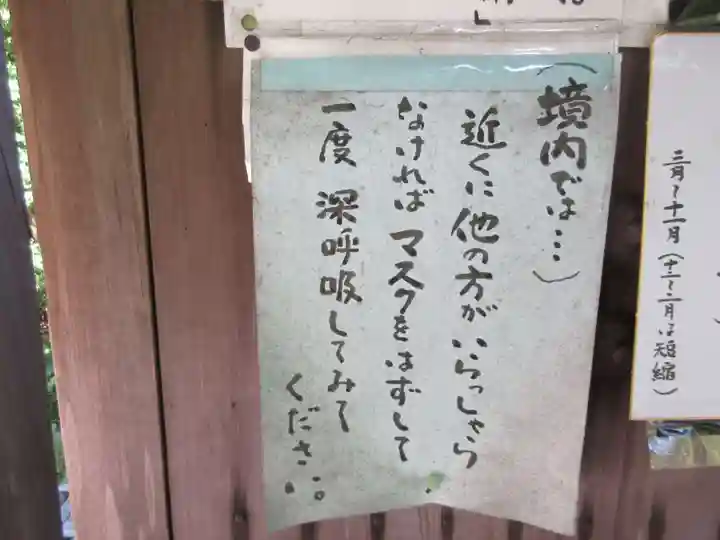 （境内では…）
近くに他の方がいらっしゃら
なければマスクをはずして
一度 深呼吸してみて
ください。
三月～十一月（十二～二月は短縮）